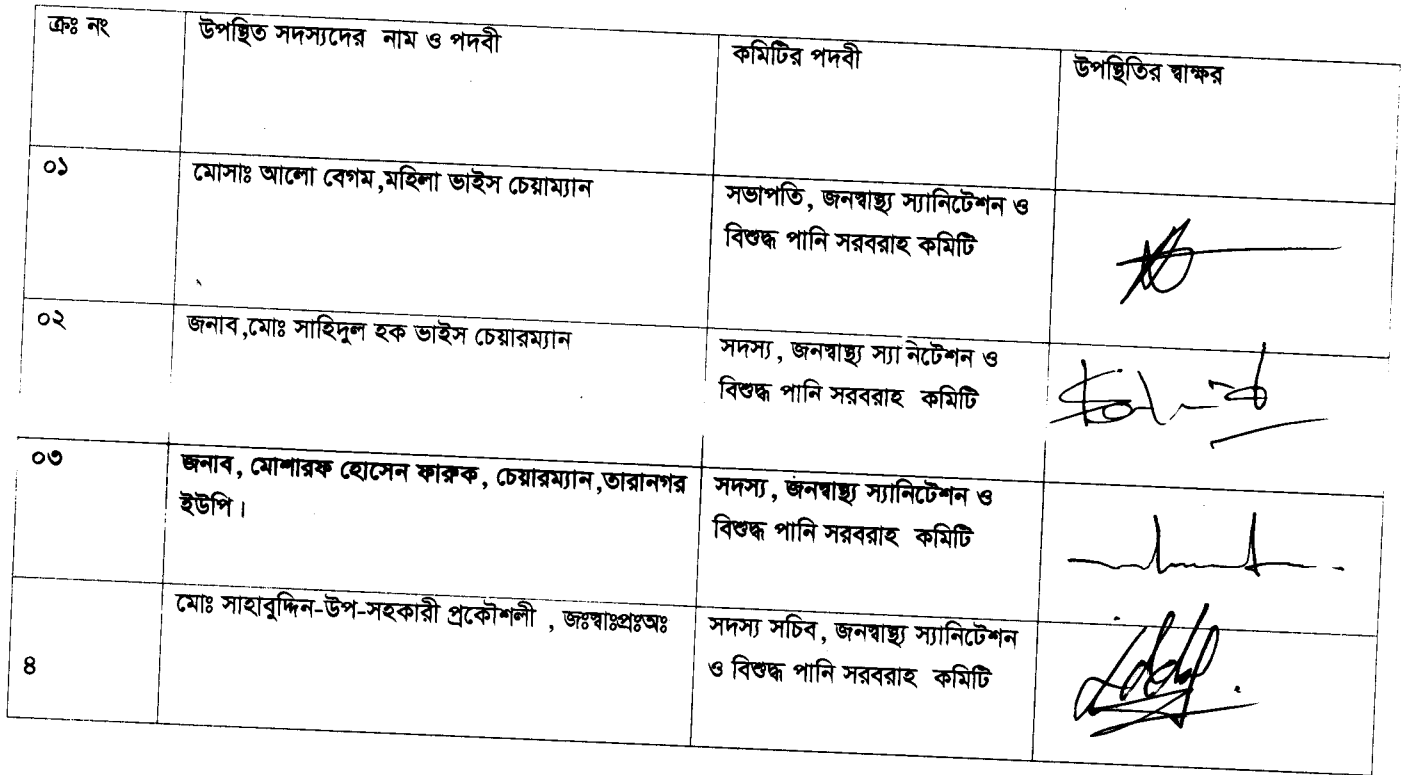 ক্রঃ নং উপস্থিত সদস্যদের নাম ও পদবী কমিটির পদবী উপস্থিতির স্বাক্ষর
০১ মোসাঃ আলো বেগম,মহিলা ভাইস চেয়াম্যান সভাপতি, জনস্বাস্থ্য স্যানিটেশন ও
বিশুদ্ধ পানি সরবরাহ কমিটি
০২ জনাব,মোঃ সাহিদুল হক ভাইস চেয়ারম্যান সদস্য, জনস্বাস্থ্য স্যা নিটেশন ও
বিশুদ্ধ পানি সরবরাহ কমিটি
০৩ জনাব, মোশারফ হোসেন ফারুক, চেয়ারম্যান,তারানগর সদস্য, জনস্বাস্থ্য স্যানিটেশন ও
ইউপি। বিশুদ্ধ পানি সরবরাহ কমিটি
মোঃ সাহাবুদ্দিন-উপ-সহকারী প্রকৌশলী , জঃস্বাঃপ্রঃঅঃ সদস্য সচিব, জনস্বাস্থ্য স্যানিটেশন
৪ ও বিশুদ্ধ পানি সরবরাহ কমিটি